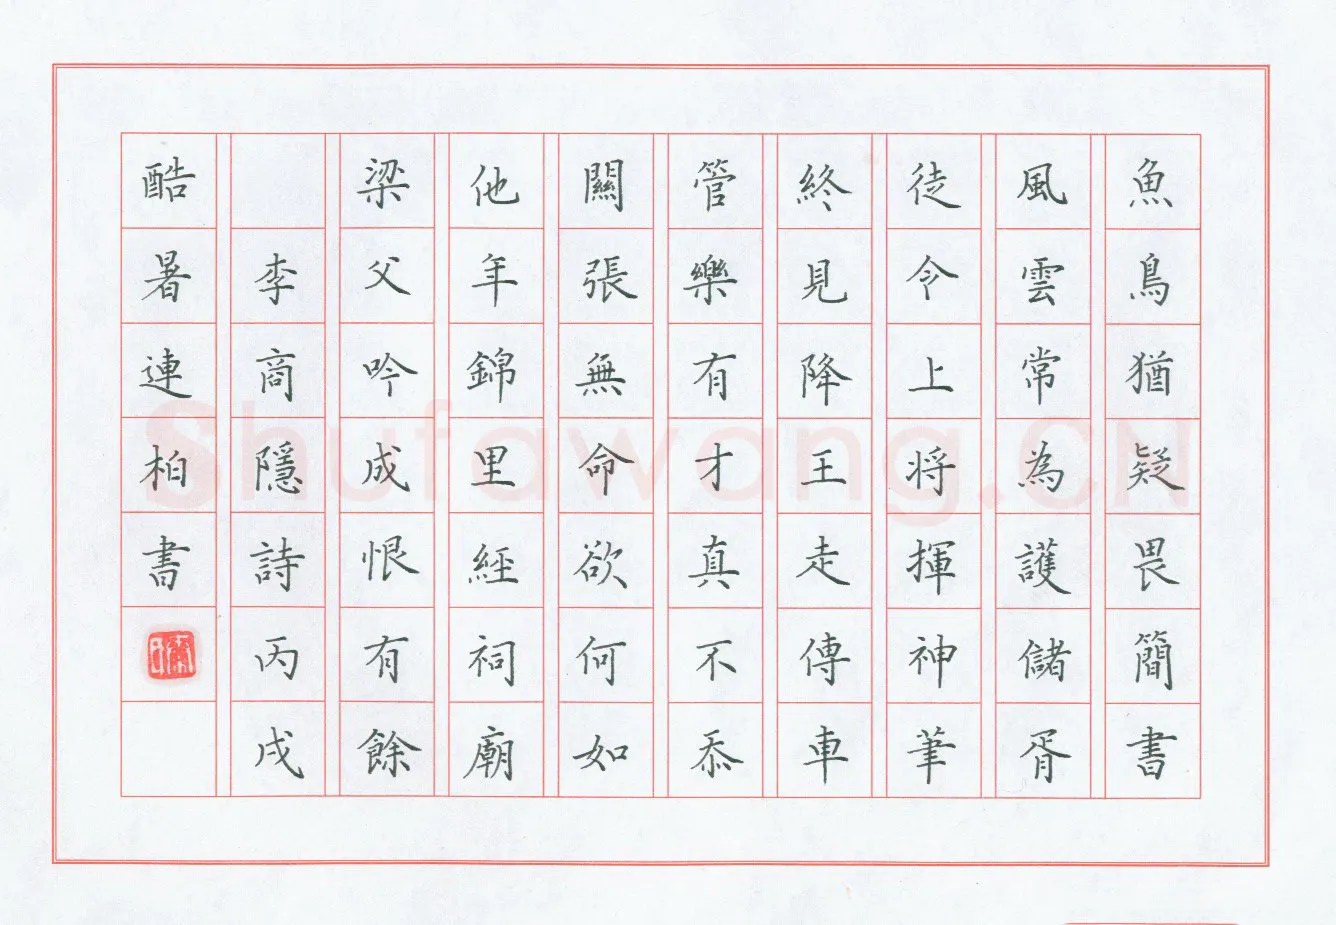 魚鳥猶疑畏簡書
風雲常為護儲胥
徒令上将揮神筆
終見降王走傳車
管樂有才真不忝
關張無命欲何如
他年錦里經祠廟
梁父吟成恨有餘
李商隱詩丙戌
酷暑連柏書
Shufawang.CN